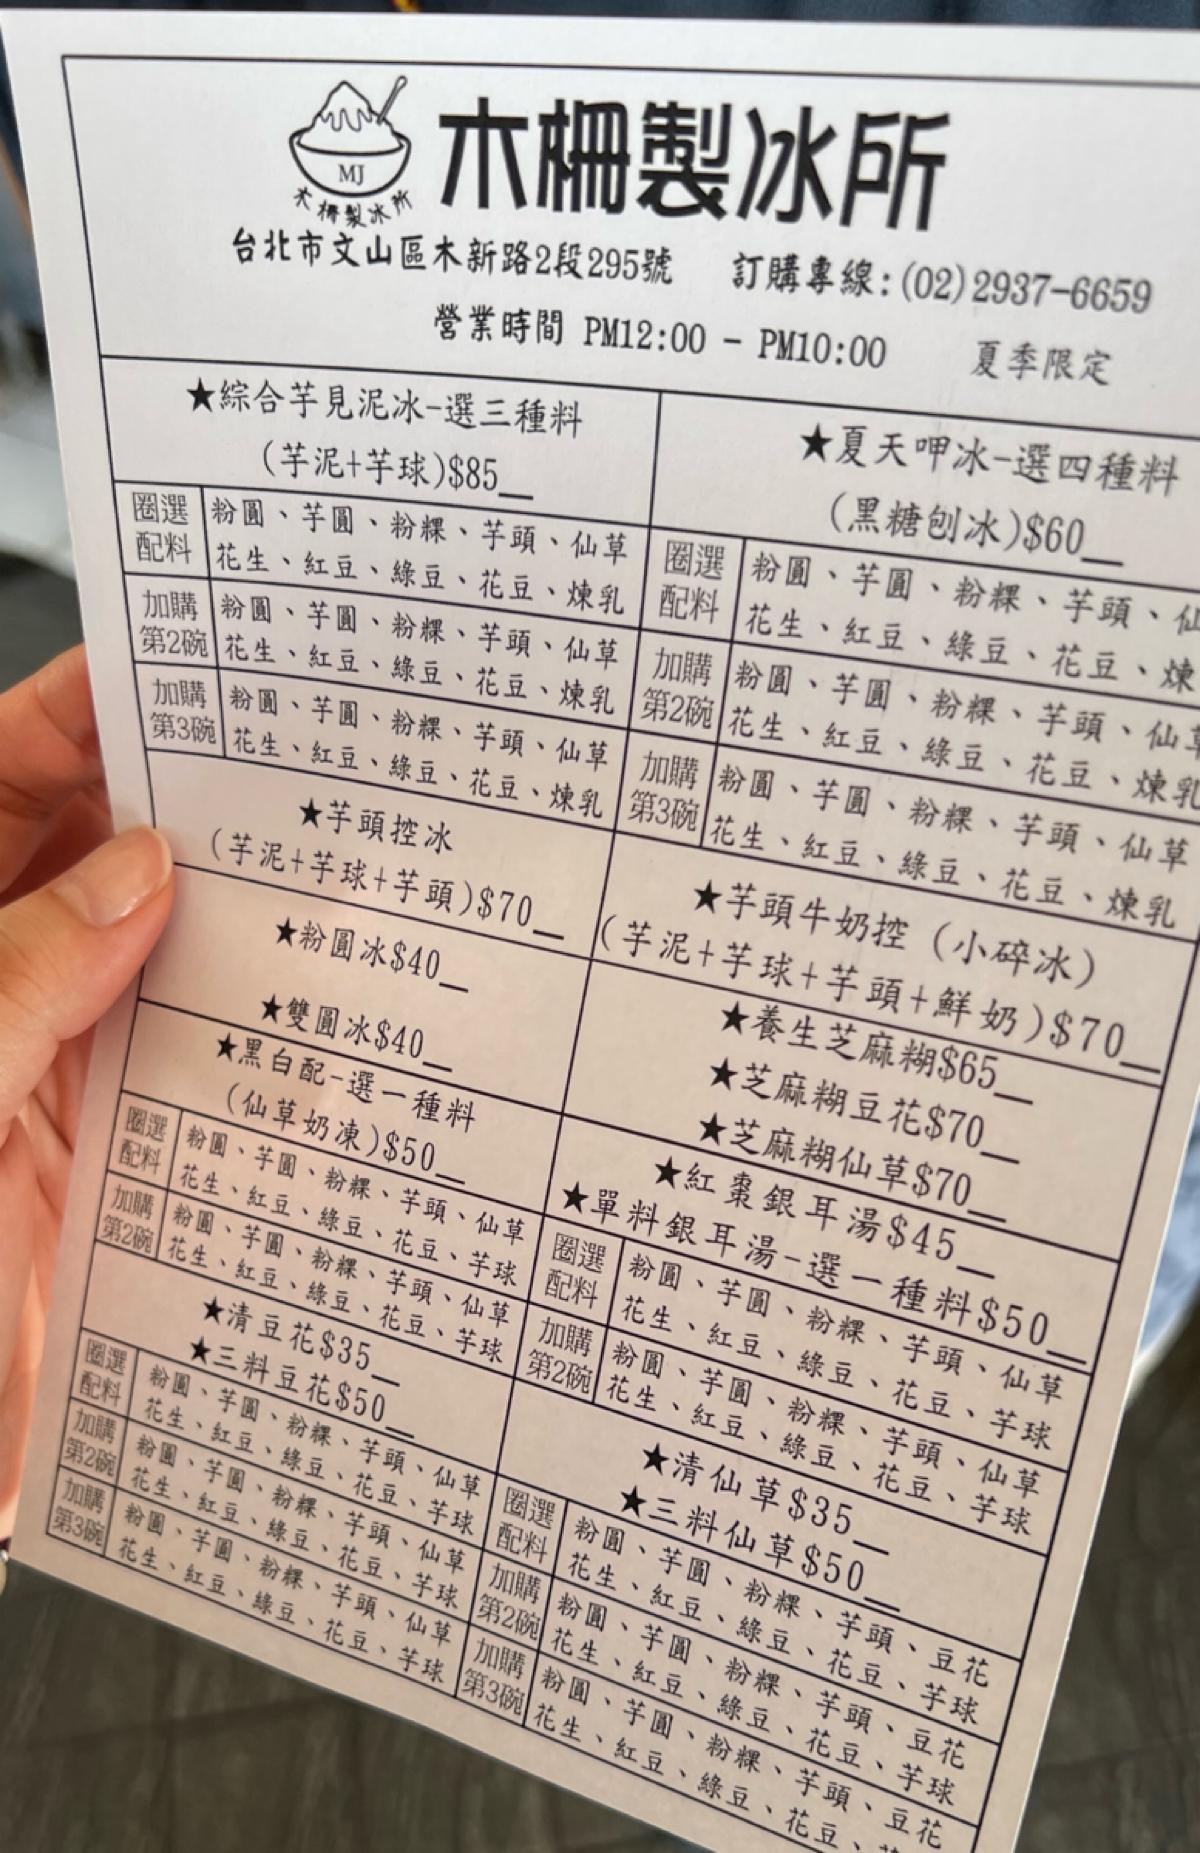 MJ
木柵製冰所
木柵製冰所
台北市文山區木新路2段295號 訂購專線:(02)2937-6659
營業時間 PM12:00 - PM10:00 夏季限定
★綜合芋見泥冰-選三種料
(芋泥+芋球)$85__
圈選配料
粉圓、芋圓、粉粿、芋頭、仙草
花生、紅豆、綠豆、花豆、煉乳
加購第2碗
粉圓、芋圓、粉粿、芋頭、仙草
花生、紅豆、綠豆、花豆、煉乳
加購第3碗
粉圓、芋圓、粉粿、芋頭、仙草
花生、紅豆、綠豆、花豆、煉乳
★夏天呷冰-選四種料
(黑糖刨冰)$60__
圈選配料
粉圓、芋圓、粉粿、芋頭、仙
花生、紅豆、綠豆、花豆、煉
加購第2碗
粉圓、芋圓、粉粿、芋頭、仙草
花生、紅豆、綠豆、花豆、煉乳
加購第3碗
粉圓、芋圓、粉粿、芋頭、仙草
花生、紅豆、綠豆、花豆、煉乳
★芋頭控冰
(芋泥+芋球+芋頭)$70__
★芋頭牛奶控(小碎冰)
(芋泥+芋球+芋頭+鮮奶)$70__
★粉圓冰$40__
★雙圓冰$40__
★養生芝麻糊$65__
★芝麻糊豆花$70__
★芝麻糊仙草$70__
★黑白配-選一種料
(仙草奶凍)$50__
圈選配料
粉圓、芋圓、粉粿、芋頭、仙草
花生、紅豆、綠豆、花豆、芋球
加購第2碗
粉圓、芋圓、粉粿、芋頭、仙草
花生、紅豆、綠豆、花豆、芋球
★紅棗銀耳湯$45__
★單料銀耳湯-選一種料$50__
圈選配料
粉圓、芋圓、粉粿、芋頭、仙草
花生、紅豆、綠豆、花豆、芋球
加購第2碗
粉圓、芋圓、粉粿、芋頭、仙草
花生、紅豆、綠豆、花豆、芋球
★清豆花$35__
★三料豆花$50__
圈選配料
粉圓、芋圓、粉粿、芋頭、仙草
花生、紅豆、綠豆、花豆、芋球
加購第2碗
粉圓、芋圓、粉粿、芋頭、仙草
花生、紅豆、綠豆、花豆、芋球
加購第3碗
粉圓、芋圓、粉粿、芋頭、仙草
花生、紅豆、綠豆、花豆、芋球
★清仙草$35__
★三料仙草$50__
圈選配料
粉圓、芋圓、粉粿、芋頭、豆花
花生、紅豆、綠豆、花豆、芋球
加購第2碗
粉圓、芋圓、粉粿、芋頭、豆花
花生、紅豆、綠豆、花豆、芋球
加購第3碗
粉圓、芋圓、粉粿、芋頭、豆花
花生、紅豆、綠豆、花豆、